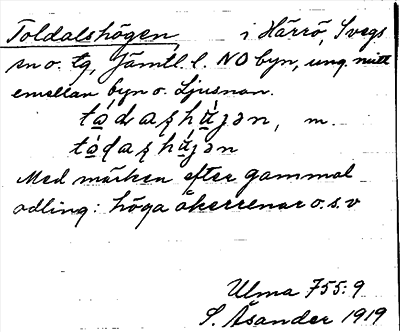 Toldalshögen, i Härrö, Svegs
sn o. tg, Jämtl. l. NO byn, ung. mitt
emellan byn o. Ljusnan.
tádaʂhɑ̀jən, m.
tádaʂhɑ̀jən
Med märken efter gammal
odling: höga åkerrenar o.s.v
Ulma 755:9
S. Åsander 1919